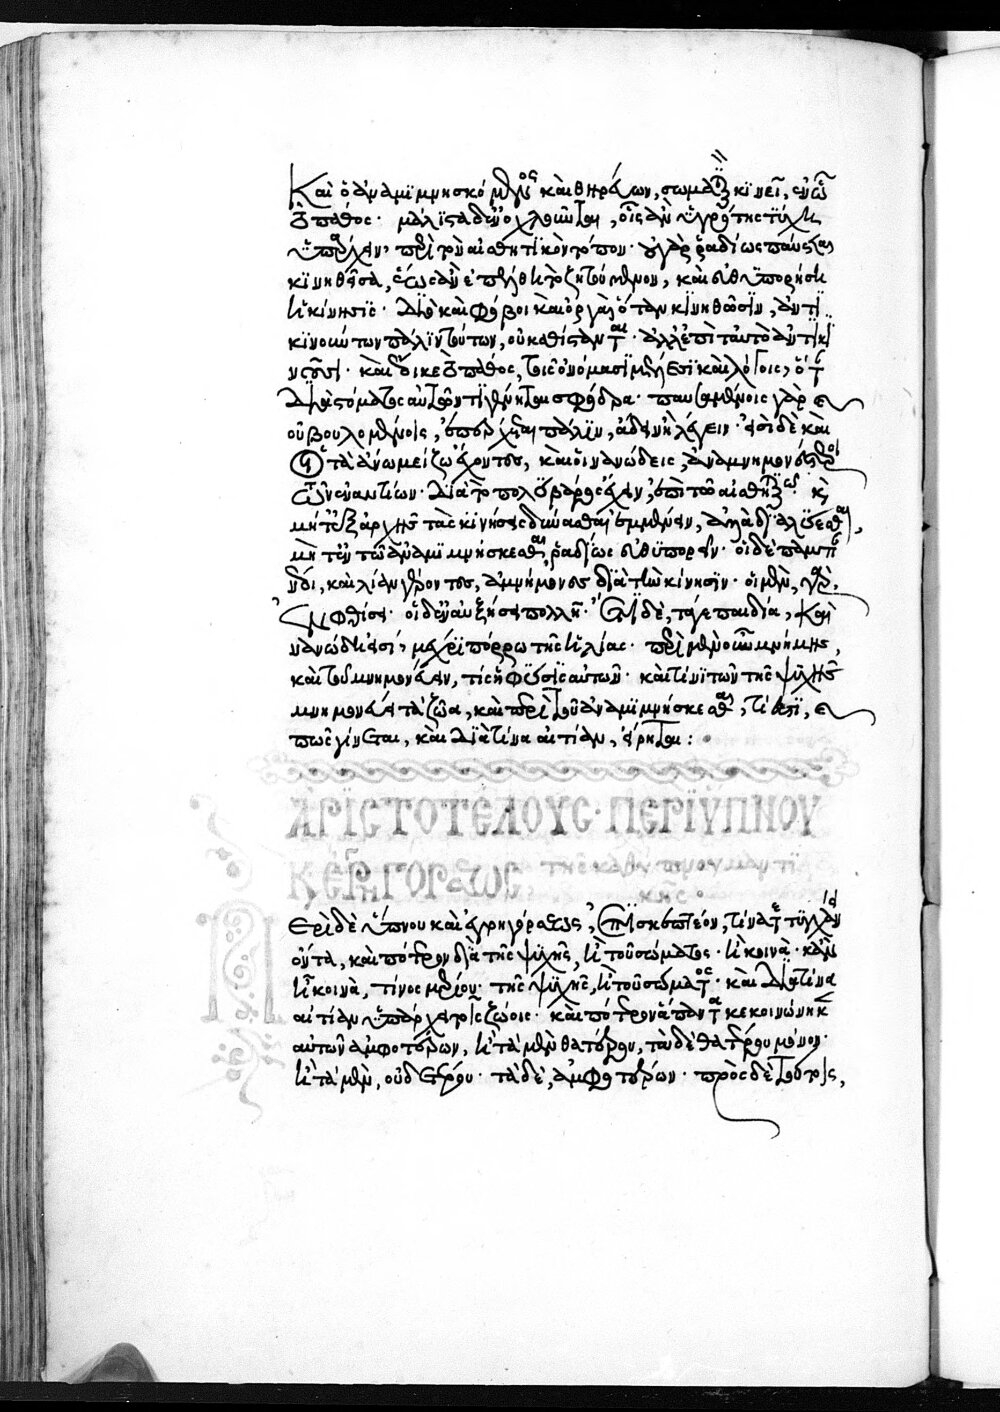 Καὶ ὁ ἀναμιμνησκόμενος καὶ θηρεύων, σωματικὸν κινεῖ, ἐν ᾧ
τὸ πάθος· μάλιστα δ' ἐνοχλοῦνται, οἷς ἂν ὑγρότης τύχῃ
ὑπάρχειν περὶ τὸν αἰσθητικὸν τρόπον· οὐ γὰρ ῥαδίως παύεται
κινηθεῖσα, ἕως ἂν ἐπέλθῃ τὸ ζητούμενον, καὶ εὐθυπορήσῃ
ἡ κίνησις· διὸ καὶ φόβοι καὶ ὀργαὶ ὅταν κινηθῶσιν, ἀντι
κινούντων πάλιν τούτων, οὐ καθίστανται· ἀλλ' ἐπὶ τὸ αὐτὸ ἀντικι
νοῦσι· καὶ ἔοικε τὸ πάθος, τοῖς ὀνόμασι μέλεσι καὶ λόγοις, ὅταν
διὰ στόματος αὐτῶν τι γένηται σφόδρα· παυσαμένοις γὰρ
οὐ βουλομένοις, ἐπέρχεται πάλιν, ᾄδειν ἢ λέγειν· εἰσὶ δὲ καὶ
οἱ τὰ ἄνω μείζω ἔχοντες, καὶ οἱ νανώδεις, ἀμνημονέστεροι
τῶν ἐναντίων· διὰ τὸ πολὺ βάρος ἔχειν, ἐπὶ τῷ αἰσθητικῷ· καὶ
μήτ' ἐξ ἀρχῆς τὰς κινήσεις δύνασθαι ἐμμένειν, ἀλλὰ διαλύεσθαι,
μήτ' ἐν τῷ ἀναμιμνήσκεσθαι, ῥαδίως εὐθυπορεῖν· οἱ δὲ πάμπαν
νέοι, καὶ λίαν γέροντες, ἀμνήμονες διὰ τὴν κίνησιν· οἱ μὲν γὰρ,
ἐν φθίσει· οἱ δ' ἐν αὐξήσει πολλῇ· ἔτι δὲ, τά γε παιδία, καὶ
νανώδη εἰσί, μέχρι πόρρω τῆς ἡλικίας· περὶ μὲν οὖν μνήμης,
καὶ τοῦ μνημονεύειν, τίς ἡ φύσις αὐτῶν· καὶ τίνι τῶν τῆς ψυχῆς
μνημονεύει τὰ ζῶα, καὶ περὶ τοῦ ἀναμιμνήσκεσθαι, τί ἐστι,
πῶς γίνεται, καὶ διὰ τίνα αἰτίαν, εἴρηται :
ἈΡΙΣΤΟΤΈΛΟΥΣ· ΠΕΡῚ ὝΠΝΟΥ
Κ ἘΓΡΗΓΌΡΣΕΩΣ, τῆς καθ' ὕπνου μαντι
κῆς·
Περὶ δὲ ὕπνου καὶ ἐγρηγόρσεως, ἐπισκεπτέον, τίνα τε τυγχάνει
ὄντα, καὶ πότερον διὰ τῆς ψυχῆς, ἢ τοῦ σώματος· ἢ κοινὰ· κἂν
ᾖ κοινὰ, τίνος μορίου· τῆς ψυχῆς, ἢ τοῦ σώματος· καὶ διὰ τίνα
αἰτίαν ὑπάρχει τοῖς ζώοις· καὶ πότερον ἅπαντα κεκοινώνηκεν
αὐτῶν ἀμφοτέρων, ἢ τὰ μὲν θατέρου, τὰ δὲ θατέρου μόνον·
ἢ τὰ μὲν, οὐδετέρου· τὰ δὲ, ἀμφοτέρων· πρὸς δὲ τούτοις,